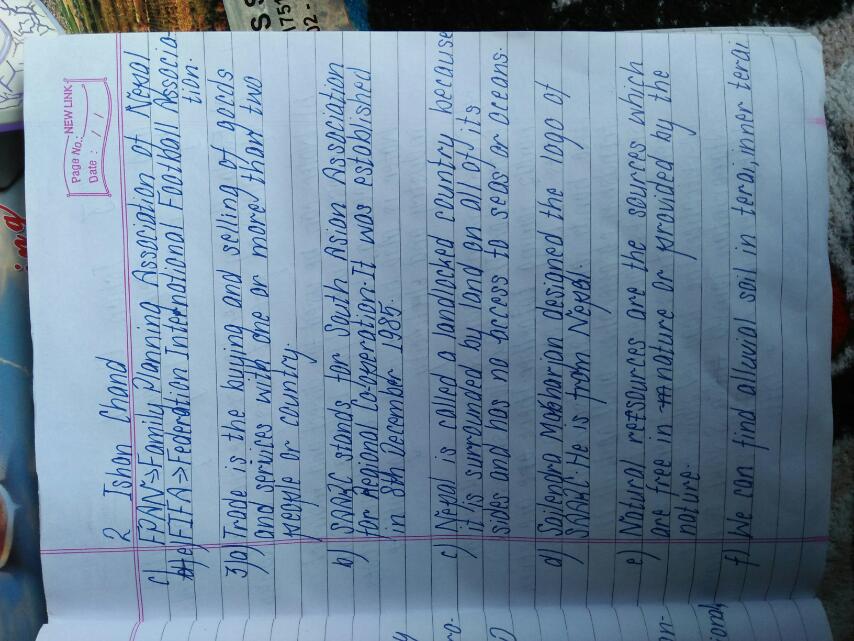 NEW LINK
Page No.:
Date : / /
2 Ishan Chand
c) FPAN=>Family Planning Association of Nepal
e) FIFA=>Federation International Football Associa
tion.
3)a) Trade is the buying and selling of goods
and services with one or more than two
people or country.
b) SAARC stands for South Asian Association
for Regional Co-operation. It was established
in 8th December 1985.
c) Nepal is called a landlocked country because
it is surrounded by land on all of its
sides and has no access to seas or oceans.
d) Sailendra Maharjan designed the logo of
SAARC. He is from Nepal.
e) Natural retsources are the sources which
are free in nature or provided by the
nature.
f) We can find alluvial soil in terai, inner terai